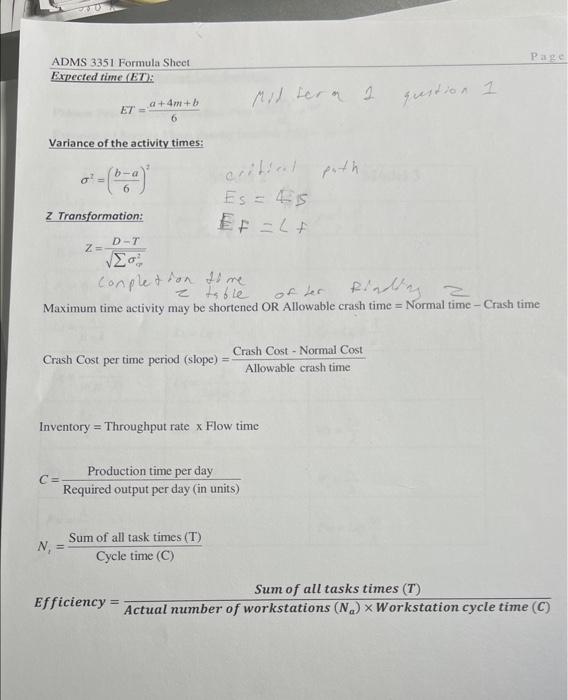 ADMS 3351 Formula Sheet
Page
Expected time (ET):
ET = (a + 4m + b) / 6
Mid term 1 question 1
Variance of the activity times:
σ² = ((b – a) / 6)²
critical path
Es = Ls
EF = Lf
Z Transformation:
Z = (D – T) / √∑σ²cp
Completion time
z table after finding z
Maximum time activity may be shortened OR Allowable crash time = Normal time – Crash time
Crash Cost per time period (slope) = (Crash Cost - Normal Cost) / Allowable crash time
Inventory = Throughput rate x Flow time
C = Production time per day / Required output per day (in units)
Nt = Sum of all task times (T) / Cycle time (C)
Efficiency = Sum of all tasks times (T) / Actual number of workstations (Na) × Workstation cycle time (C)